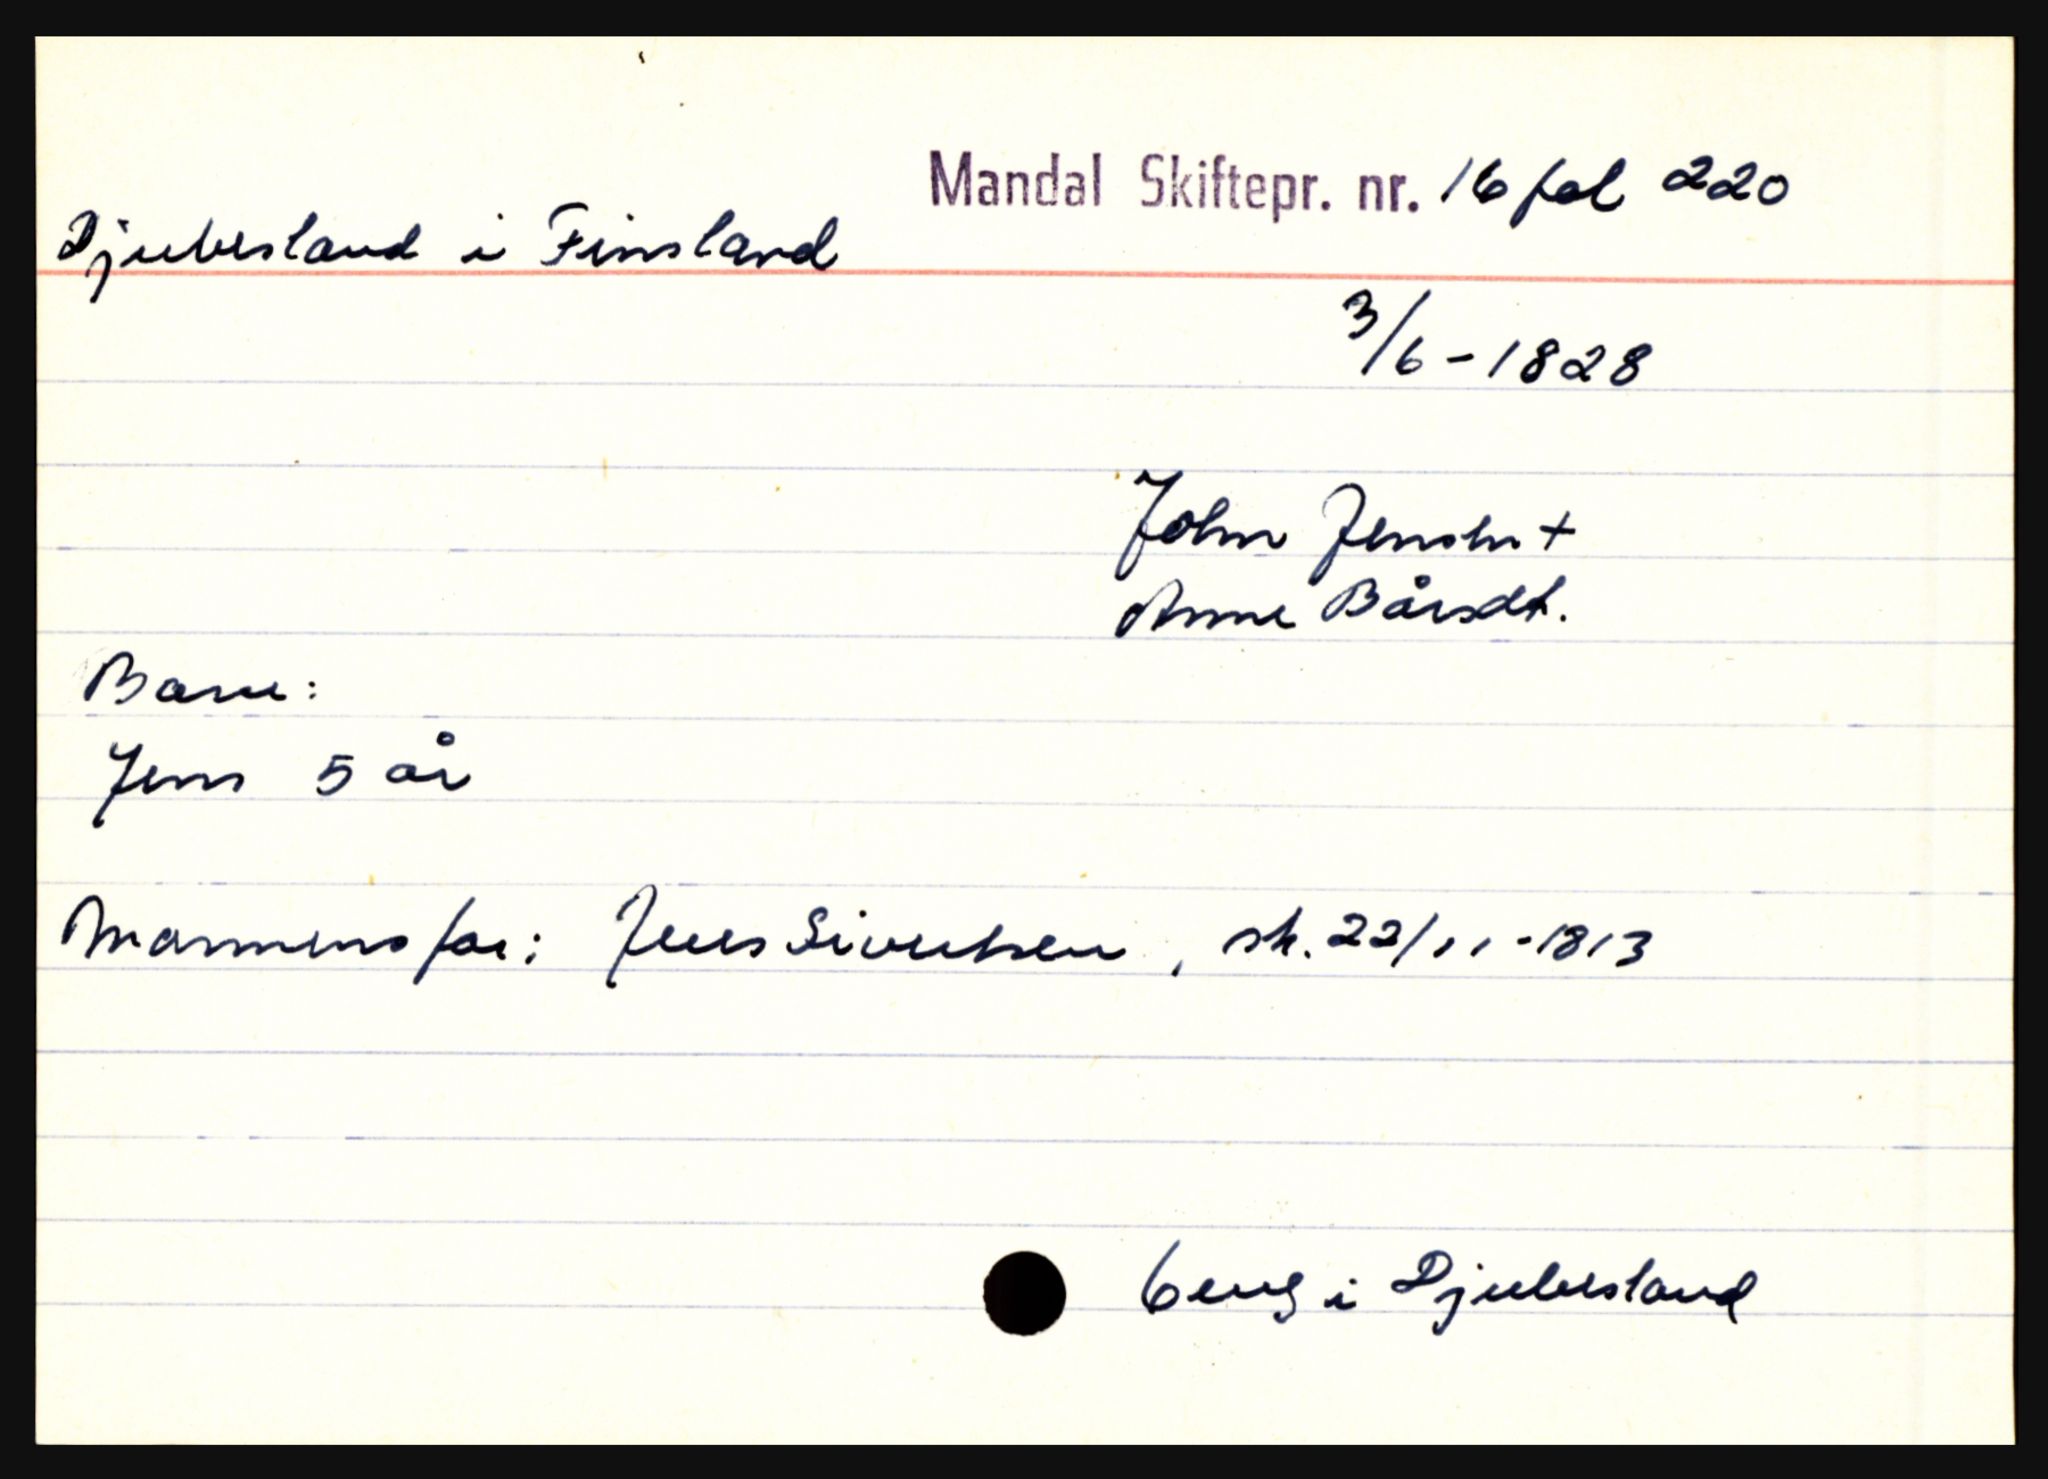 Mandal Skiftepr. nr. 16 fol 220
Djubesland i Finsland
3/6-1828
John Jensen +
Anne Bårsdt.
Barn:
Jens 5 år
Mannens far: Jens Sivertsen, sk. 22/11-1813
6 eng i Djubesland